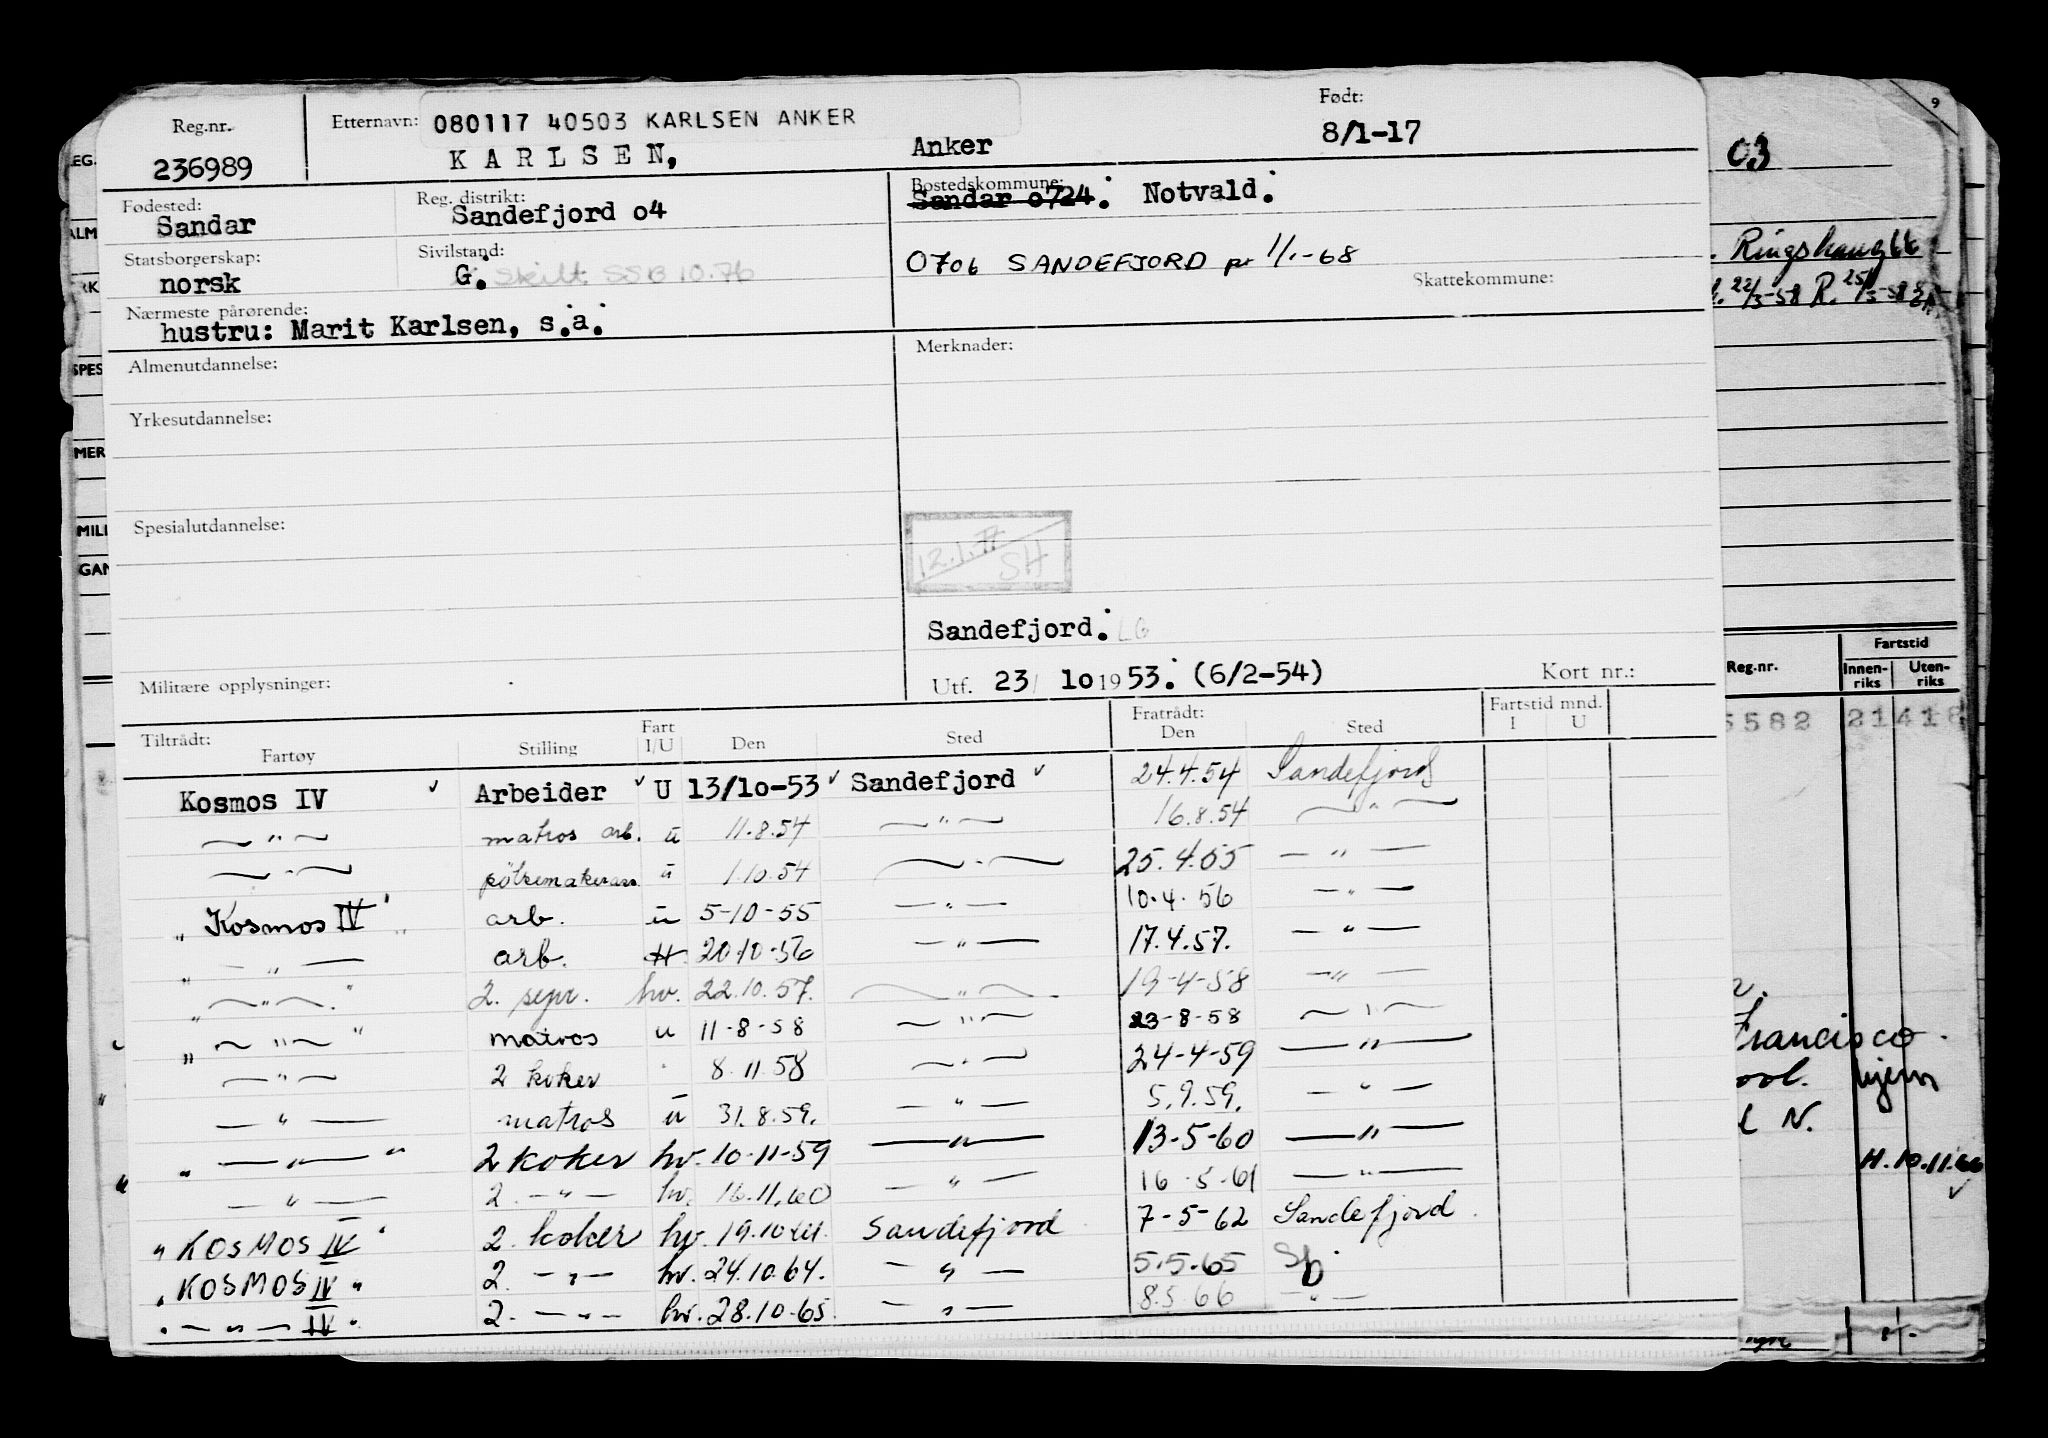 Reg.nr. Etternavn: 080117 40503 KARLSEN ANKER Født:
236989 KARLSEN, Anker 8/1-17
Fødested: Sandar Reg. distrikt: Sandefjord o4 Bostedskommune: Sandar o724. Notvald.
Statsborgerskap: norsk Sivilstand: G. Skilt SSB 10.76 0706 SANDEFJORD pr 1/1-68
Skattekommune:
Nærmeste pårørende: hustru: Marit Karlsen, s.a.
Almenutdannelse: Merknader:
Yrkesutdannelse:
Spesialutdannelse: 12.1.77 SH
Sandefjord. LG
Militære opplysninger: Utf. 23/ 1o 1953. (6/2-54) Kort nr.:
Tiltrådt: Fratrådt: Fartstid mnd.
Fartøy Stilling Fart I/U Den Sted Den Sted I U
Kosmos IV Arbeider U 13/1o-53 Sandefjord 24.4.54 Sandefjord
— " — matros arb. u 11.8.54 — " — 16.8.54 — " —
— " — u 1.10.54 — " — 25.4.55 — " —
" Kosmos IV " arb. u 5-10-55 — " — 10.4.56 — " —
" — " — arb. 20.10-56 — " — 17.4.57. — " —
" — " — " 2. sepr. hv. 22.10.57. — " — 19-4-58 — " —
" — " — " matros u 11-8-58 — " — 23-8-58 — " —
— " — 2 koker " 8.11.58 — " — 24-4-59 — " —
— " — matros u 31.8.59. — " — 5.9.59. — " —
" — " — " 2 koker hv. 10-11-59 — " — 13-5-60 — " —
— " — 2. — " — hv. 16.11.60 — " — 16-5-61 — " —
" KOSMOS IV " 2. koker hv. 19.10.61. Sandefjord 7-5-62 Sandefjord.
" KOSMOS IV " 2. — " — hv. 24.10.64. — " — 5.5.65 Sfj.
" — " — IV " 2. — " — hv. 28.10-65. — " — 8.5.66 — " —
9
03
Ringshaug 66
22/3-58 R. 25/3-58
Reg.nr. Fartstid
Innen-riks Uten-riks
5582 21418
Francisco.
hjem
N.
H. 10.11.66
EG.
ALM
RK
SPES
MER
MILI
GAN